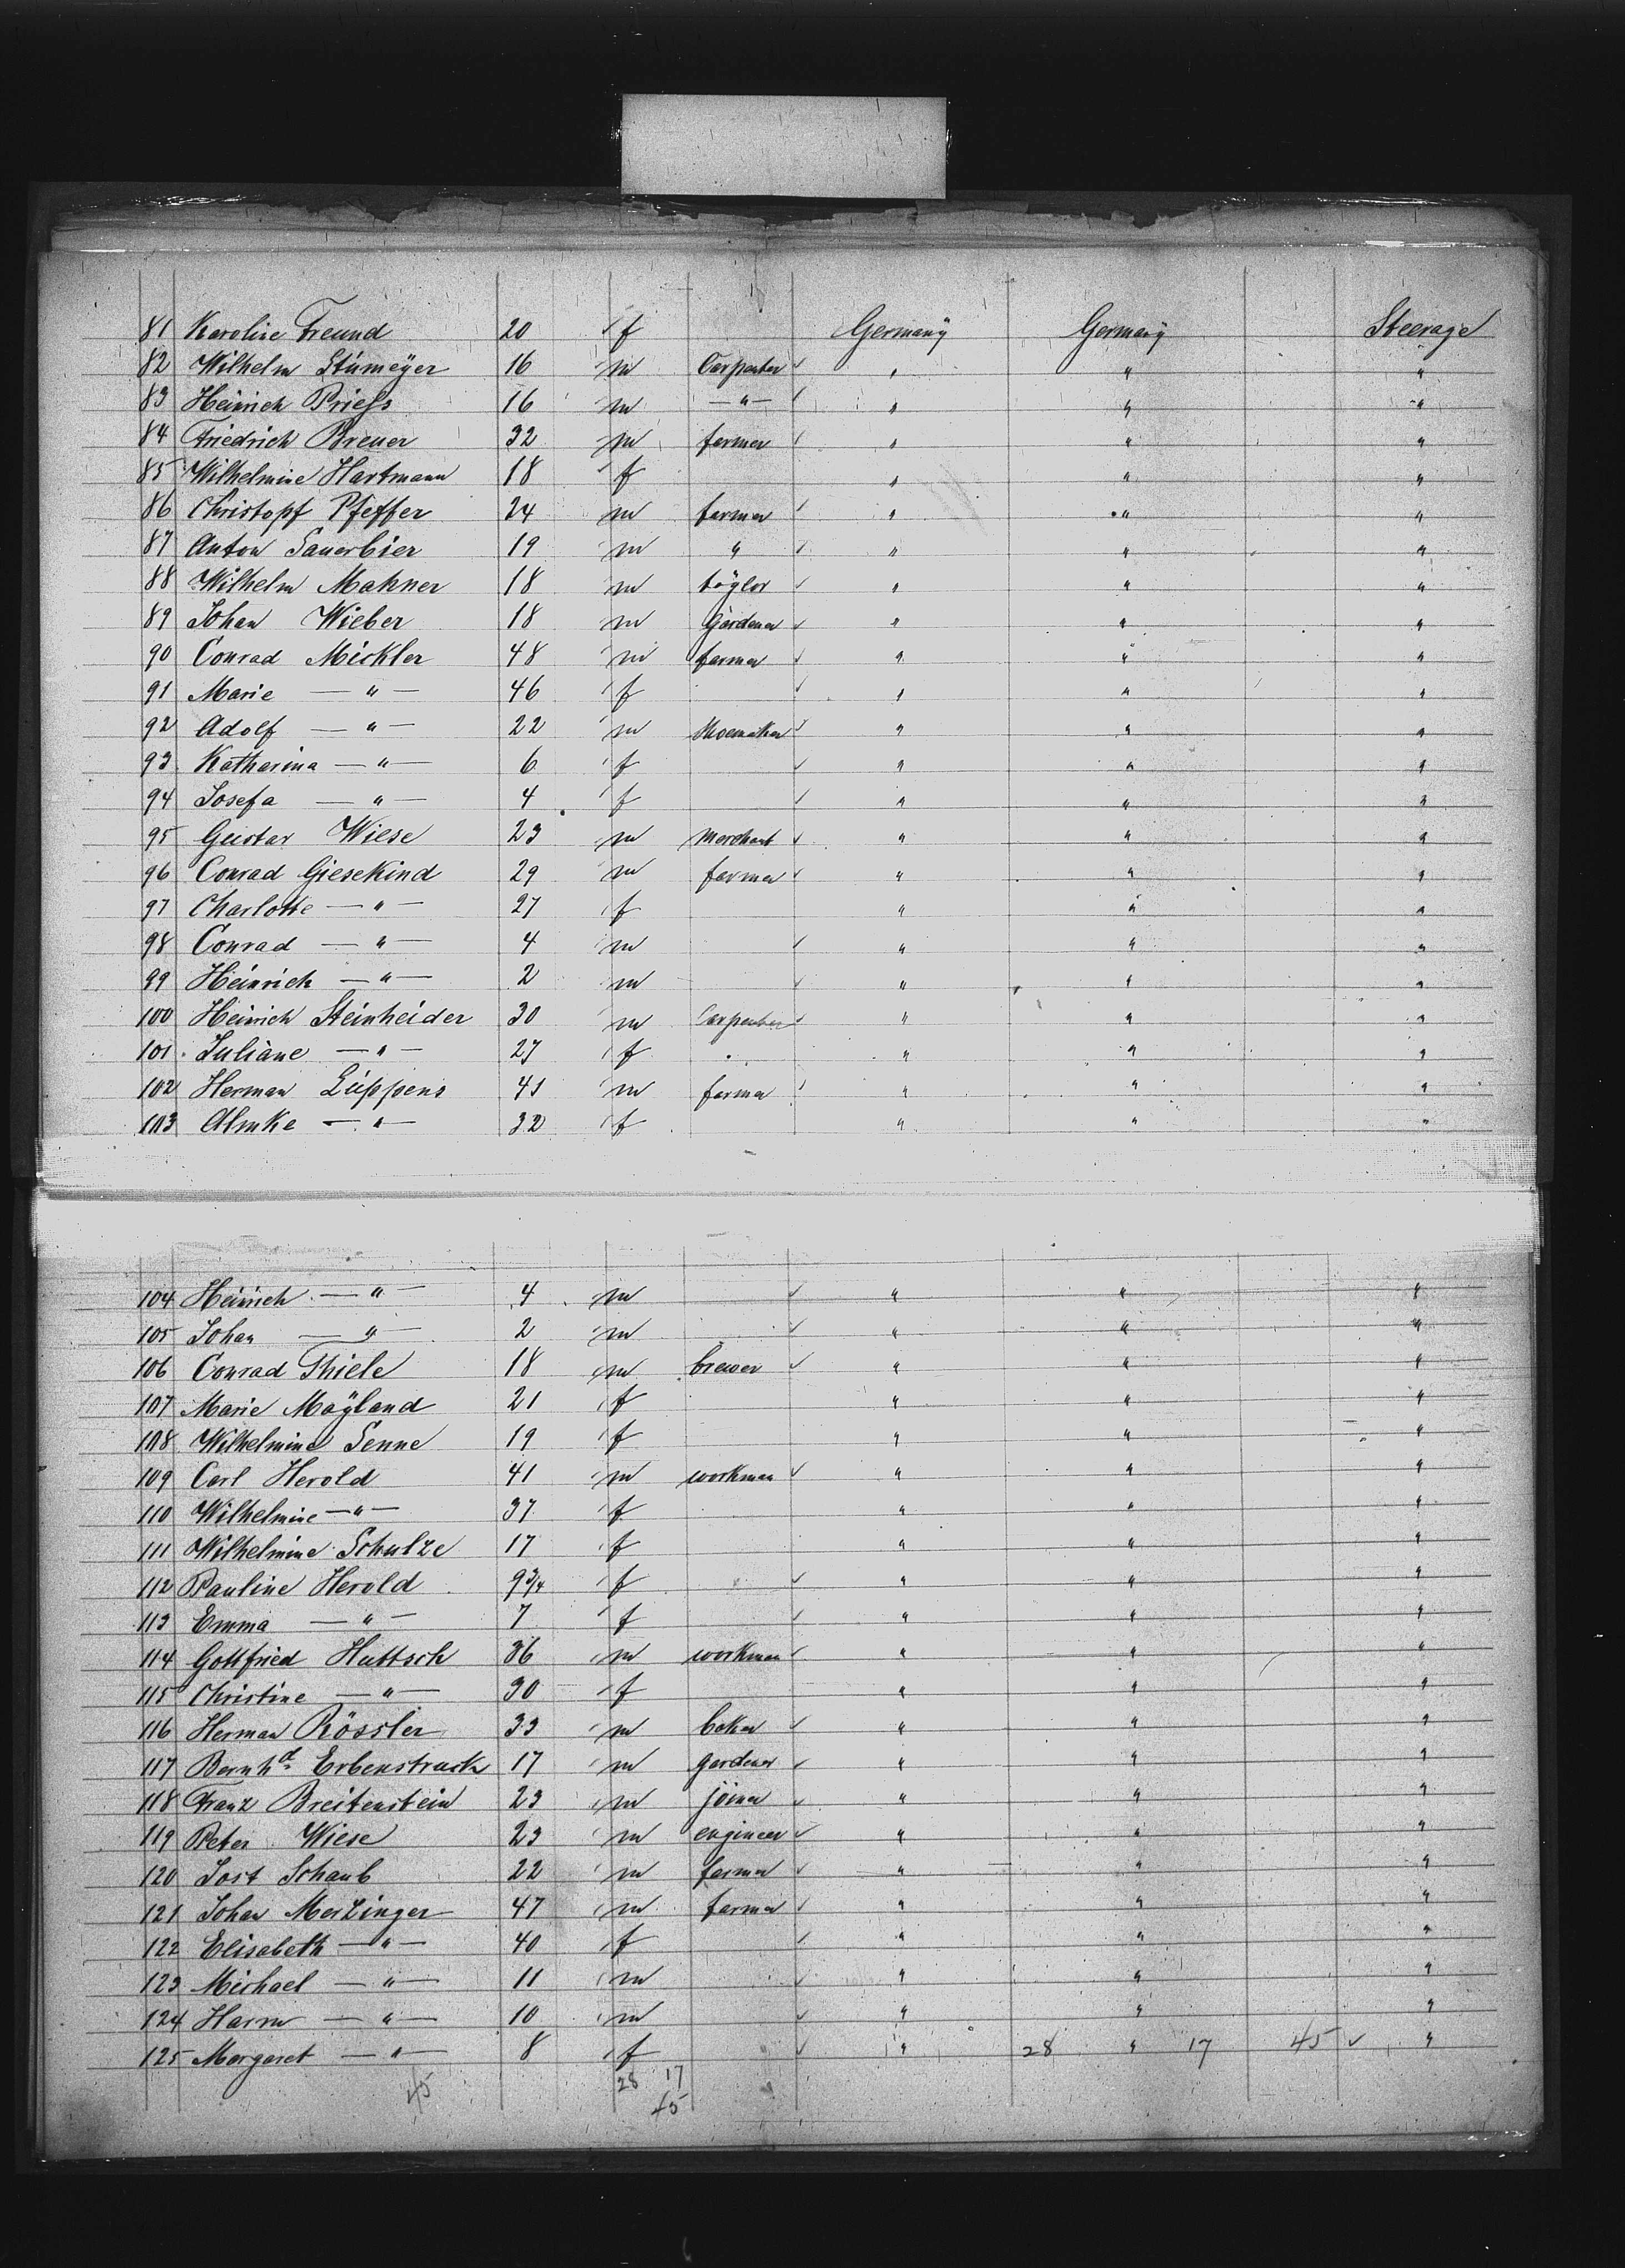 81 Karoline Freund 20 f Germany Germany Steerage
82 Wilhelm Stümeyer 16 m Carpenter " " "
83 Heinrich Priess 16 m — " — " " "
84 Friedrich Breuer 32 m farmer " " "
85 Wilhelmine Hartmann 18 f " " "
86 Christopf Pfeffer 24 m farmer " " "
87 Anton Sauerbier 19 m " " " "
88 Wilhelm Mahner 18 m täylor " " "
89 Johan Wieber 18 m Gärdener " " "
90 Conrad Mickler 48 m farmer " " "
91 Marie — " — 46 f " " "
92 Adolf — " — 22 m Shoemaker " " "
93 Katharina — " — 6 f " " "
94 Josefa — " — 4 f " " "
95 Gustav Wiese 23 m Merchant " " "
96 Conrad Giesekind 29 m farmer " " "
97 Charlotte — " — 27 f " " "
98 Conrad — " — 4 m " " "
99 Heinrich — " — 2 m " " "
100 Heinrich Steinheider 30 m Carpenter " " "
101 Juliane — " — 27 f " " "
102 Herman Lüppens 41 m farmer " " "
103 Almke — " — 32 f " " "
104 Heinrich — " — 4 m " " "
105 Johan — " — 2 m " " "
106 Conrad Thiele 18 m brewer " " "
107 Marie Mayland 21 f " " "
108 Wilhelmine Senne 19 f " " "
109 Carl Herold 41 m workman " " "
110 Wilhelmine — " — 37 f " " "
111 Wilhelmine Schulze 17 f " " "
112 Pauline Herold 9 3/4 f " " "
113 Emma — " — 7 f " " "
114 Gottfried Huttsch 36 m workman " " "
115 Christine — " — 30 f " " "
116 Herman Rössler 33 m baker " " "
117 Bernhd Erbenstruck 17 m gardener " " "
118 Franz Breitenstein 23 m joiner " " "
119 Peter Wiese 23 m engineer " " "
120 Jost Schaub 22 m farmer " " "
121 Johan Merzinger 47 m farmer " " "
122 Elisabeth — " — 40 f " " "
123 Michael — " — 11 m " " "
124 Harm — " — 10 m " " "
125 Margaret — " — 8 f " 28 " 17 45 "
45 28 17
45